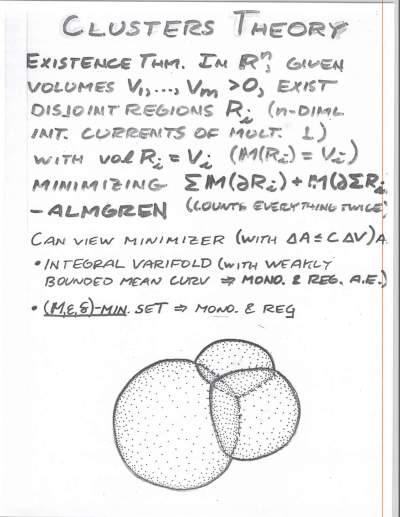 CLUSTERS THEORY
EXISTENCE THM. IN Rⁿ, GIVEN
VOLUMES V₁,..., Vₘ >0, EXIST
DISJOINT REGIONS Rᵢ (n-DIML
INT. CURRENTS OF MULT. 1)
WITH vol Rᵢ = Vᵢ (M(Rᵢ) = Vᵢ)
MINIMIZING ΣM(∂Rᵢ) + M(∂ΣRᵢ
-ALMGREN (COUNTS EVERYTHING TWICE)
CAN VIEW MINIMIZER (WITH ΔA ≤ C ΔV) A
• INTEGRAL VARIFOLD (WITH WEAKLY
BOUNDED MEAN CURV ⇒ MONO. & REG. A.E.)
• (M,ε,δ)-MIN. SET ⇒ MONO. & REG